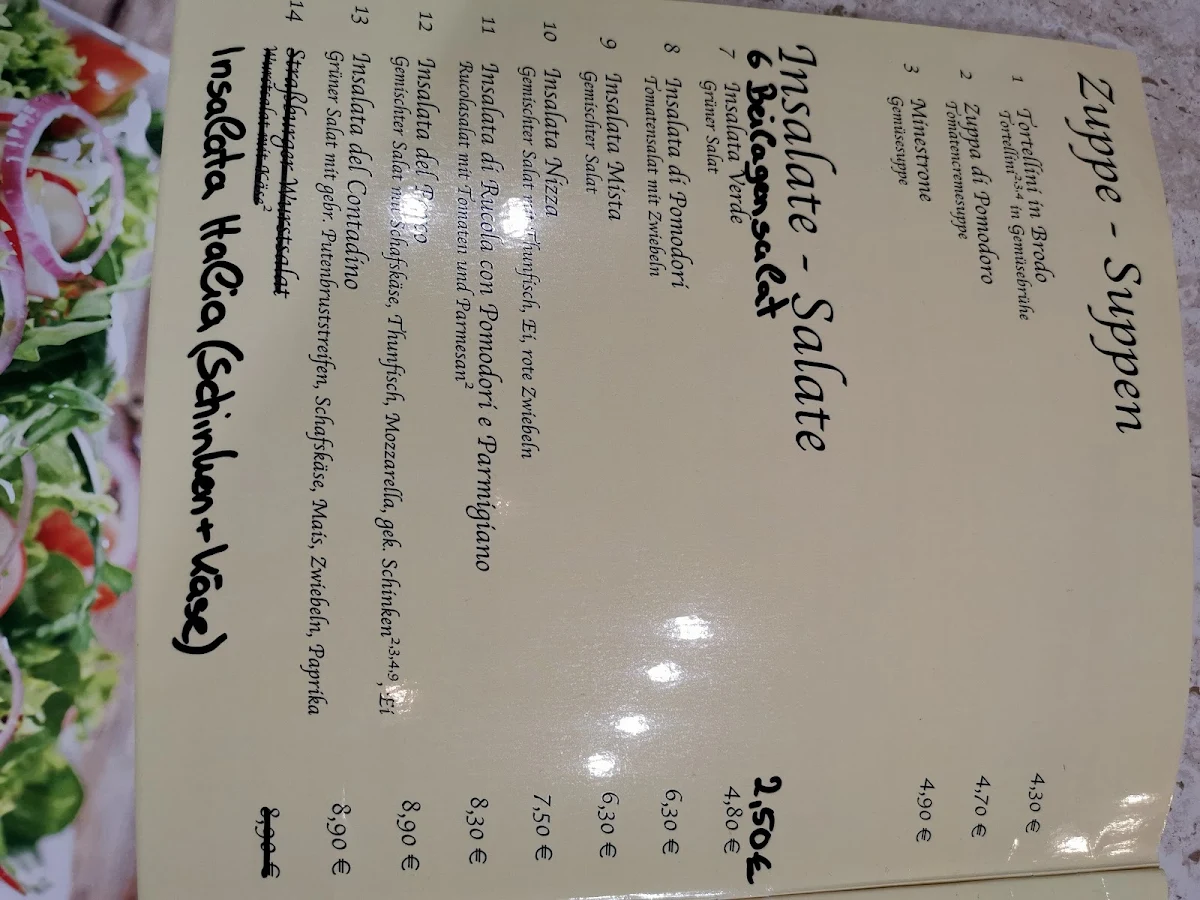 Zuppe - Suppen
1 Tortellini in Brodo 4,30 €
Tortellini2,3,4 in Gemüsebrühe
2 Zuppa di Pomodoro 4,70 €
Tomatencremesuppe
3 Minestrone 4,90 €
Gemüsesuppe
Insalate - Salate
6 Beilagensalat 2,50€
7 Insalata Verde 4,80 €
Grüner Salat
8 Insalata di Pomodori 6,30 €
Tomatensalat mit Zwiebeln
9 Insalata Mista 6,30 €
Gemischter Salat
10 Insalata Nizza 7,50 €
Gemischter Salat mit Thunfisch, Ei, rote Zwiebeln
11 Insalata di Rucola con Pomodori e Parmigiano 8,30 €
Rucolasalat mit Tomaten und Parmesan2
12 Insalata del 8,90 €
Gemischter Salat mit Schafskäse, Thunfisch, Mozzarella, gek. Schinken2,3,4,9, Ei
13 Insalata del Contadino 8,90 €
Grüner Salat mit gebr. Putenbruststreifen, Schafskäse, Mais, Zwiebeln, Paprika
14 Straßburger Wurstsalat 8,90 €
Insalata Italia (Schinken + Käse)